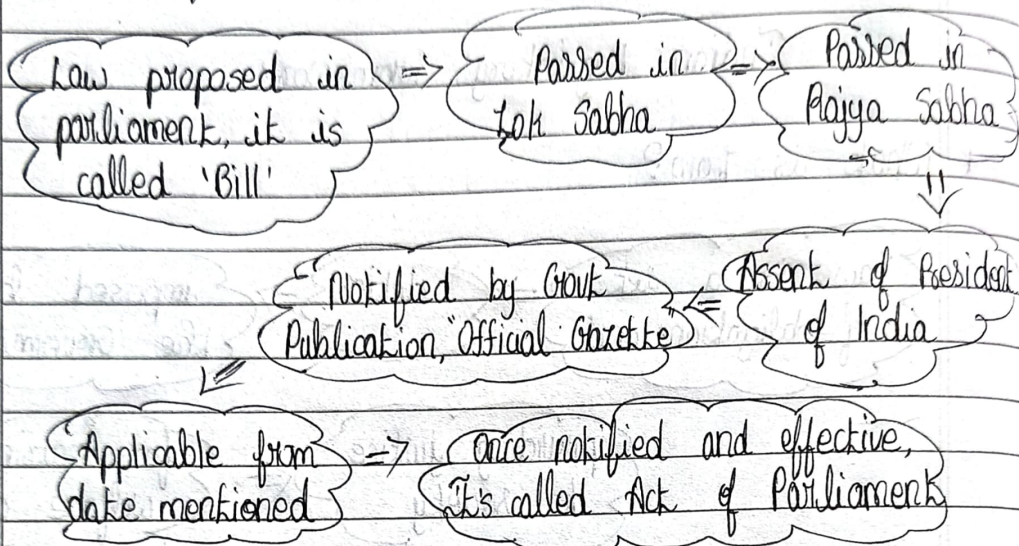 Law proposed in
parliament, it is
called 'Bill'
=> Passed in
Lok Sabha
=> Passed in
Rajya Sabha
=>
Assent of President
of India
<= Notified by Govt
Publication, "Official Gazette"
Applicable from
date mentioned
=> Once notified and effective,
It's called Act of Parliament